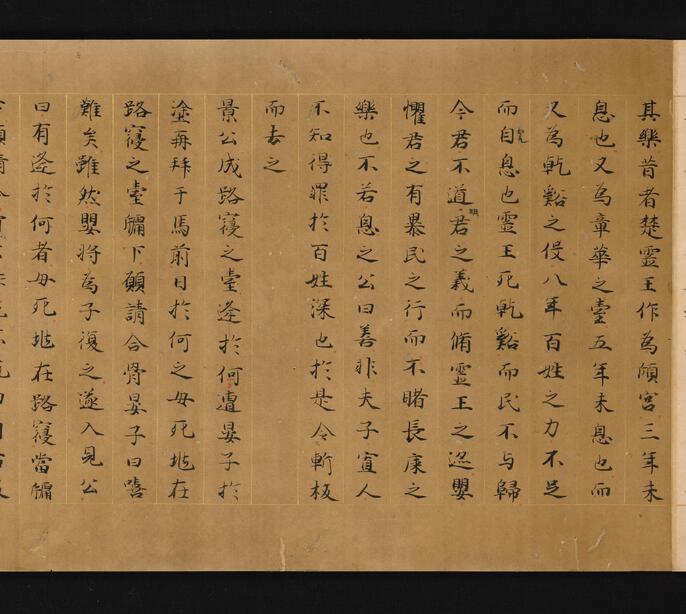 其樂昔者楚靈王作為傾宮三年未
息也又為章華之臺五年未息也而
又為乹谿之役八年百姓之力不足
而自息也靈王死乹谿而民不与歸
今君不道君之義而脩靈王之迹嬰
懼君之有暴民之行而不睹長庲之
樂也不若息之公曰善非夫子寡人
不知得罪於百姓深也於是令斬板
而去之
景公成路寑之臺逢於何遭晏子於
塗再拜于馬前曰於何之毋死垗在
路寑之臺牖下願請合骨晏子曰嘻
難矣雖然嬰將為子復之遂入見公
曰有逢於何者毋死垗在路寑當牖